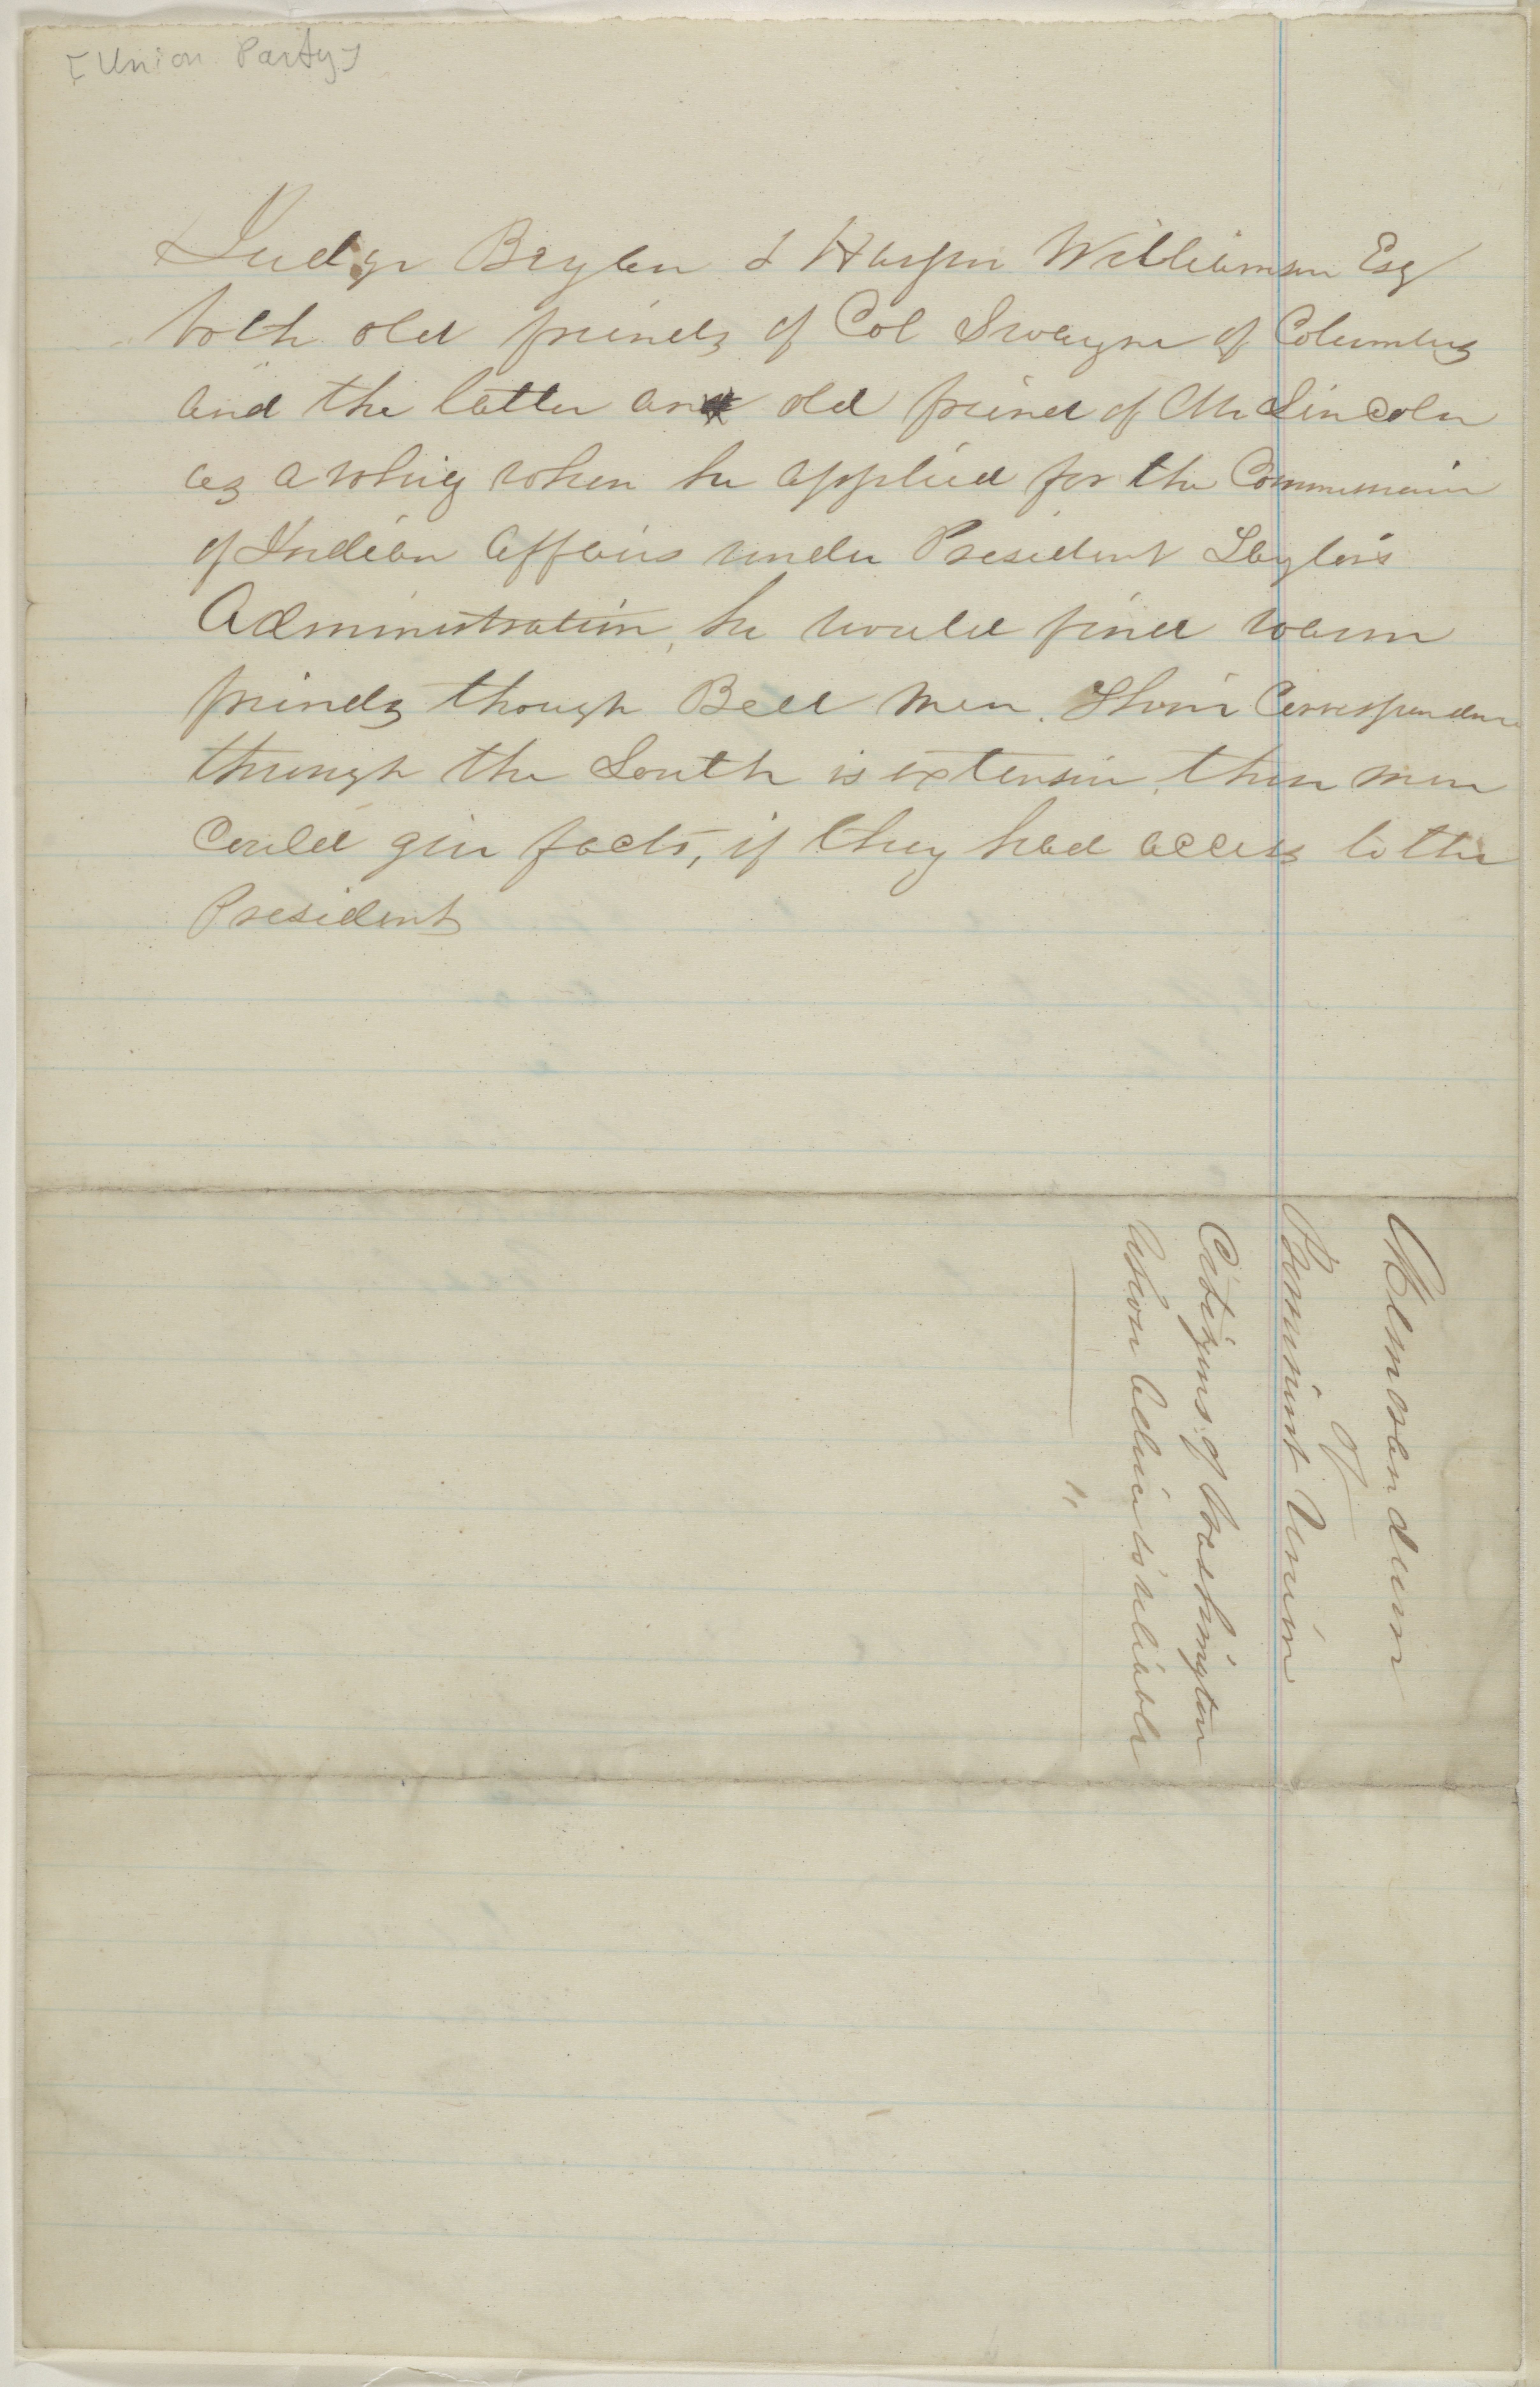 [Union Party]
Judge Bryan & Harper Williamson Esq
both old friends of Col Swayne of Columbus
and the latter an old friend of Mr Lincoln
as a Whig when he applied for the Commission
of Indian Affairs under President Taylor's
Administration, he would find warm
friends though Bell men. Their Correspondence
through the South is extensive, these men
could give facts, if they had access to the
President
Memorandum
of
Prominent Union
Citizens of Washington
whose advice is reliable